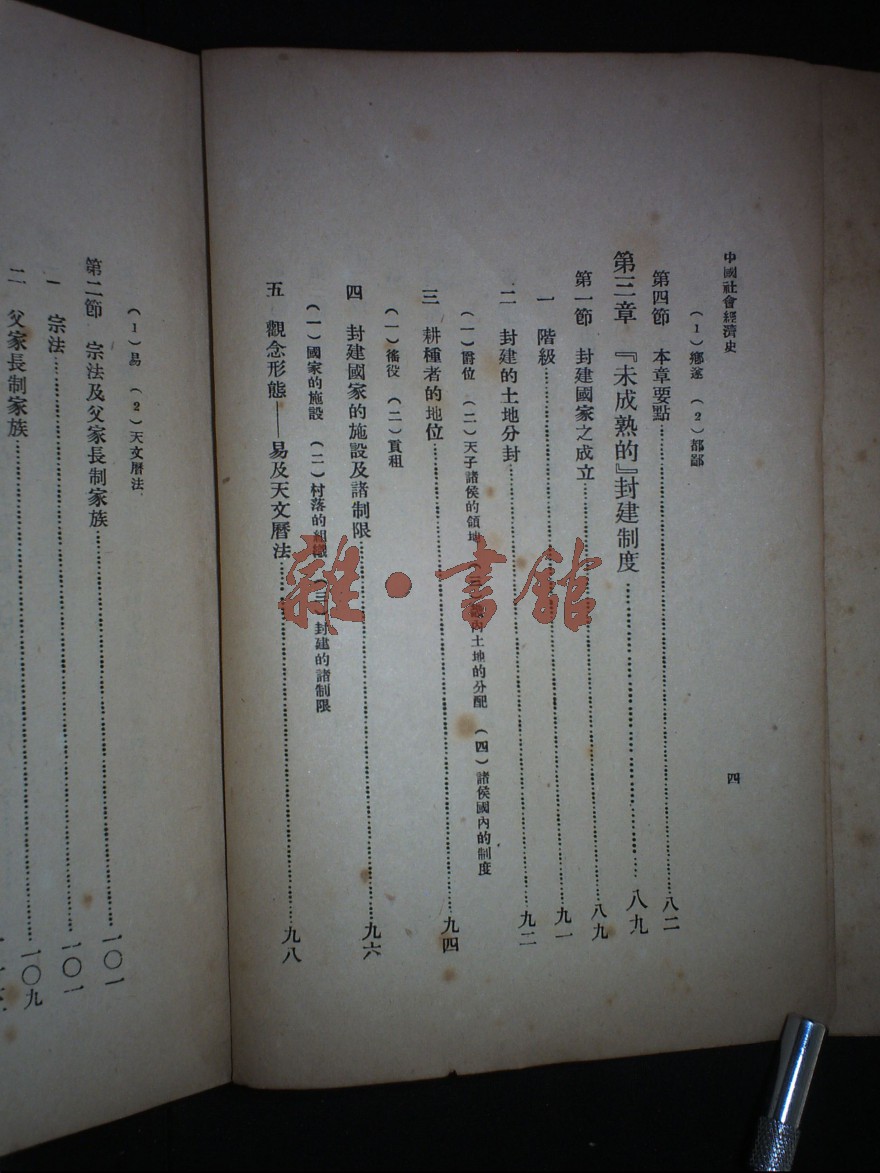 中國社會經濟史
四
（1）鄉遂 （2）都鄙
第四節 本章要點……八二
第三章 『未成熟的』封建制度……八九
第一節 封建國家之成立……八九
一 階級……九一
二 封建的土地分封……九二
（一）爵位 （二）天子諸侯的領地 （三） 內土地的分配 （四）諸侯國內的制度
三 耕種者的地位……九四
（一）徭役 （二）貢租
四 封建國家的施設及諸制限……九六
（一）國家的施設 （二）村落的組織 （三）封建的諸制限
五 觀念形態——易及天文曆法……九八
（1）易 （2）天文曆法
第二節 宗法及父家長制家族……一〇一
一 宗法……一〇一
二 父家長制家族……一〇九
雜·書館